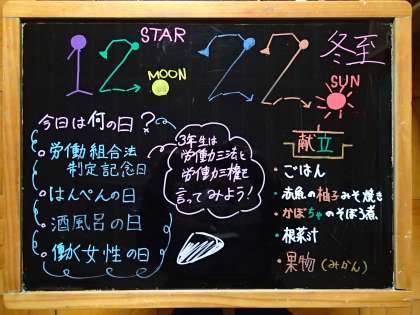 12 22
STAR
MOON
冬至
SUN
今日は何の日?
労働組合法
制定記念日
はんぺんの日
酒風呂の日
働く女性の日
3年生は
労働力三法と
労働力三権を
言ってみよう!
献立
・ごはん
・赤魚の柚子みそ焼き
・かぼちゃのそぼろ煮
・根菜汁
・果物(みかん)